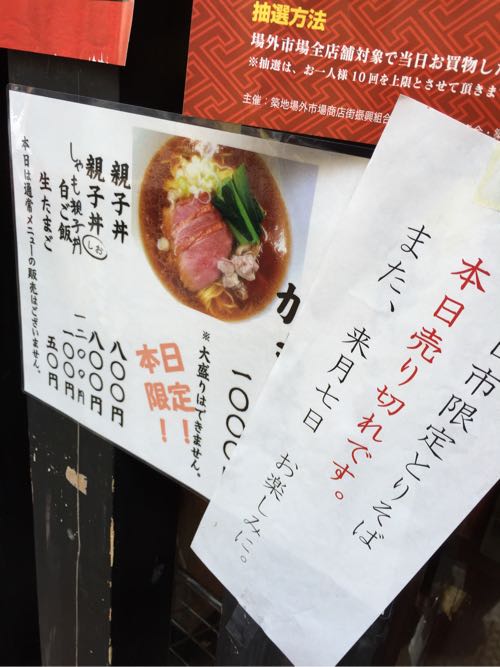 抽選方法
場外市場全店舗対象で当日お買物した
※抽選は、お一人様10回を上限とさせて頂きま
主催：築地場外市場商店街振興組合
市限定とりそば
本日売り切れです。
また、来月七日
お楽しみに。
か
一〇〇〇
※大盛りはできません。
本日
限定
！！
親子丼 八〇〇円
親子丼 しお 八〇〇円
しゃも親子丼 一二〇〇円
白ご飯 二〇〇円
生たまご 五〇円
本日は通常メニューの販売はございません。